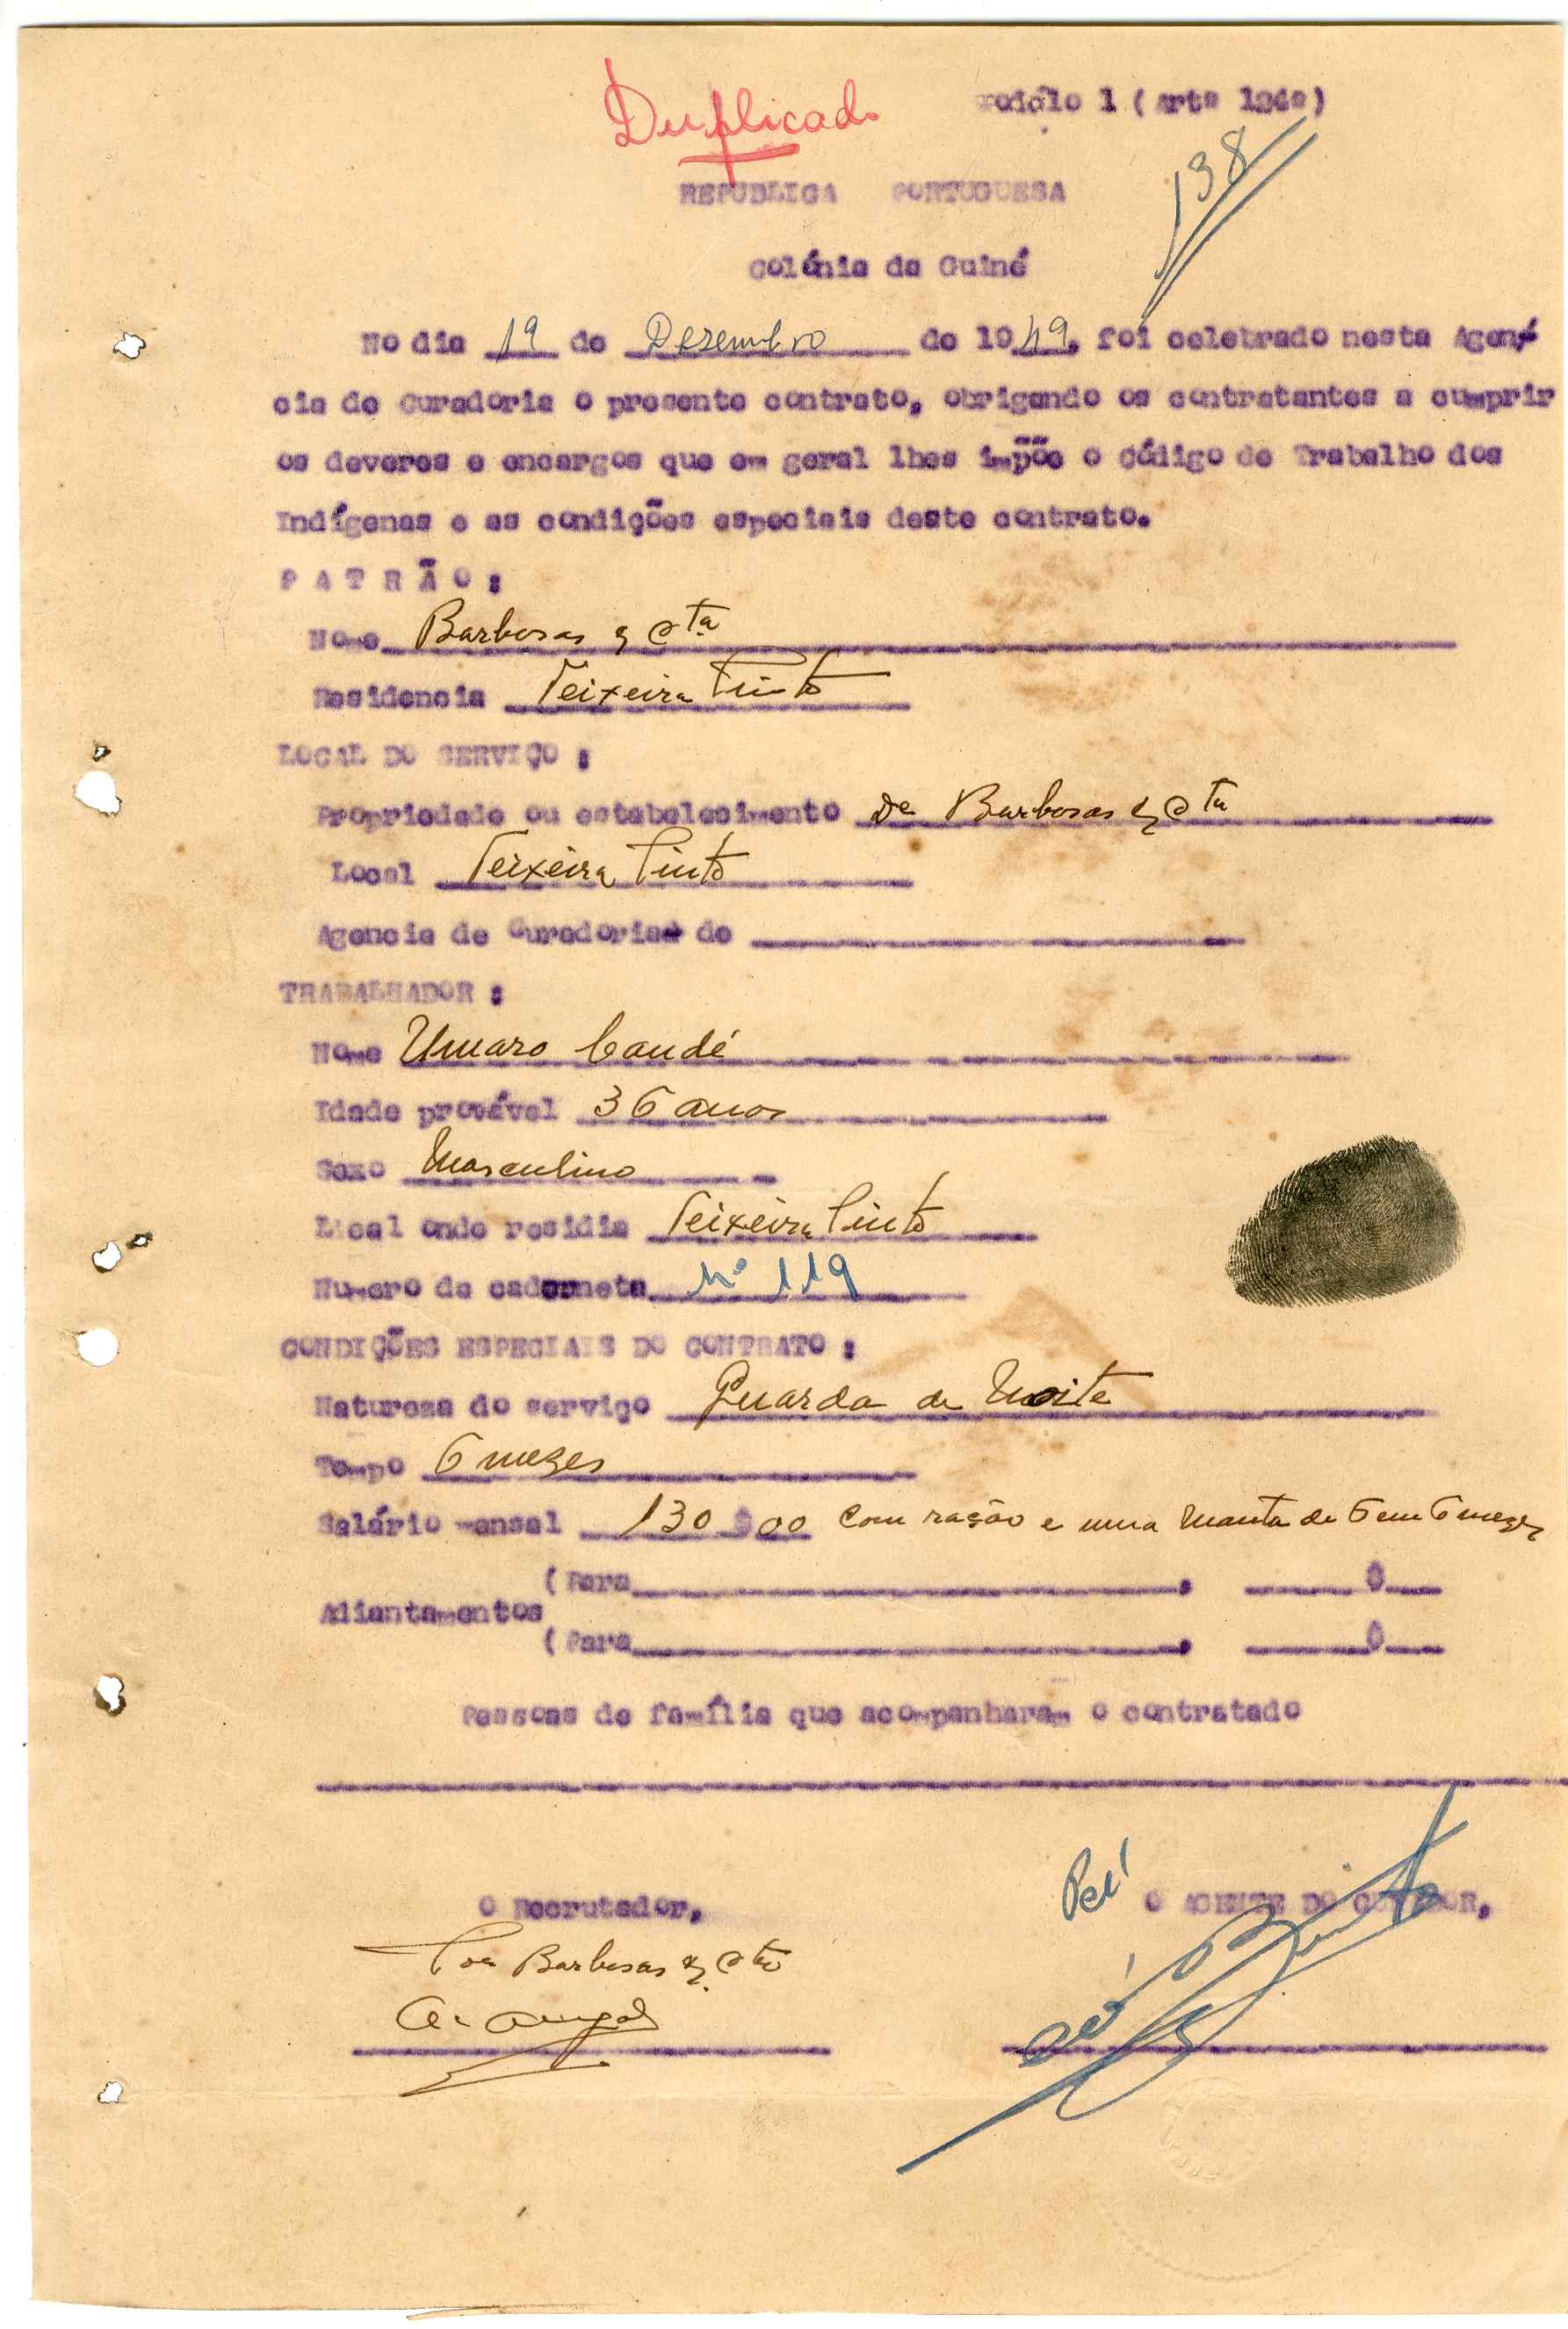 Duplicado
Modêlo 1 (Artº 134º)
138
REPUBLICA PORTUGUESA
Colónia da Guiné
No dia 19 de Dezembro de 1949, foi celebrado nesta Agen
cia de Curadoria o presente contrato, obrigando os contratantes a cumprir
os deveres e encargos que em geral lhes impõe o Código do Trabalho dos
Indígenas e as condições especiais deste contrato.
PATRÃO:
Nome Barbosas & Cta
Residencia Teixeira Pinto
LOCAL DO SERVIÇO:
Propriedade ou estabelecimento De Barbosas & Cta
Local Teixeira Pinto
Agencia de Curadoria de
TRABALHADOR:
Nome Umaro Candé
Idade provável 36 anos
Sexo Masculino
Local onde residia Teixeira Pinto
Numero da caderneta Nº 119
CONDIÇÕES ESPECIAIS DO CONTRATO:
Natureza do serviço Guarda de Noite
Tempo 6 mezes
Salário mensal 130$00 com ração e uma manta de 6 em 6 mezes
(Para , $
Adiantamentos
(Para , $
Pessoas de família que acompanharam o contratado
Pel'
O Recrutador, O AGENTE DO CURADOR,
Por Barbosas & Cta